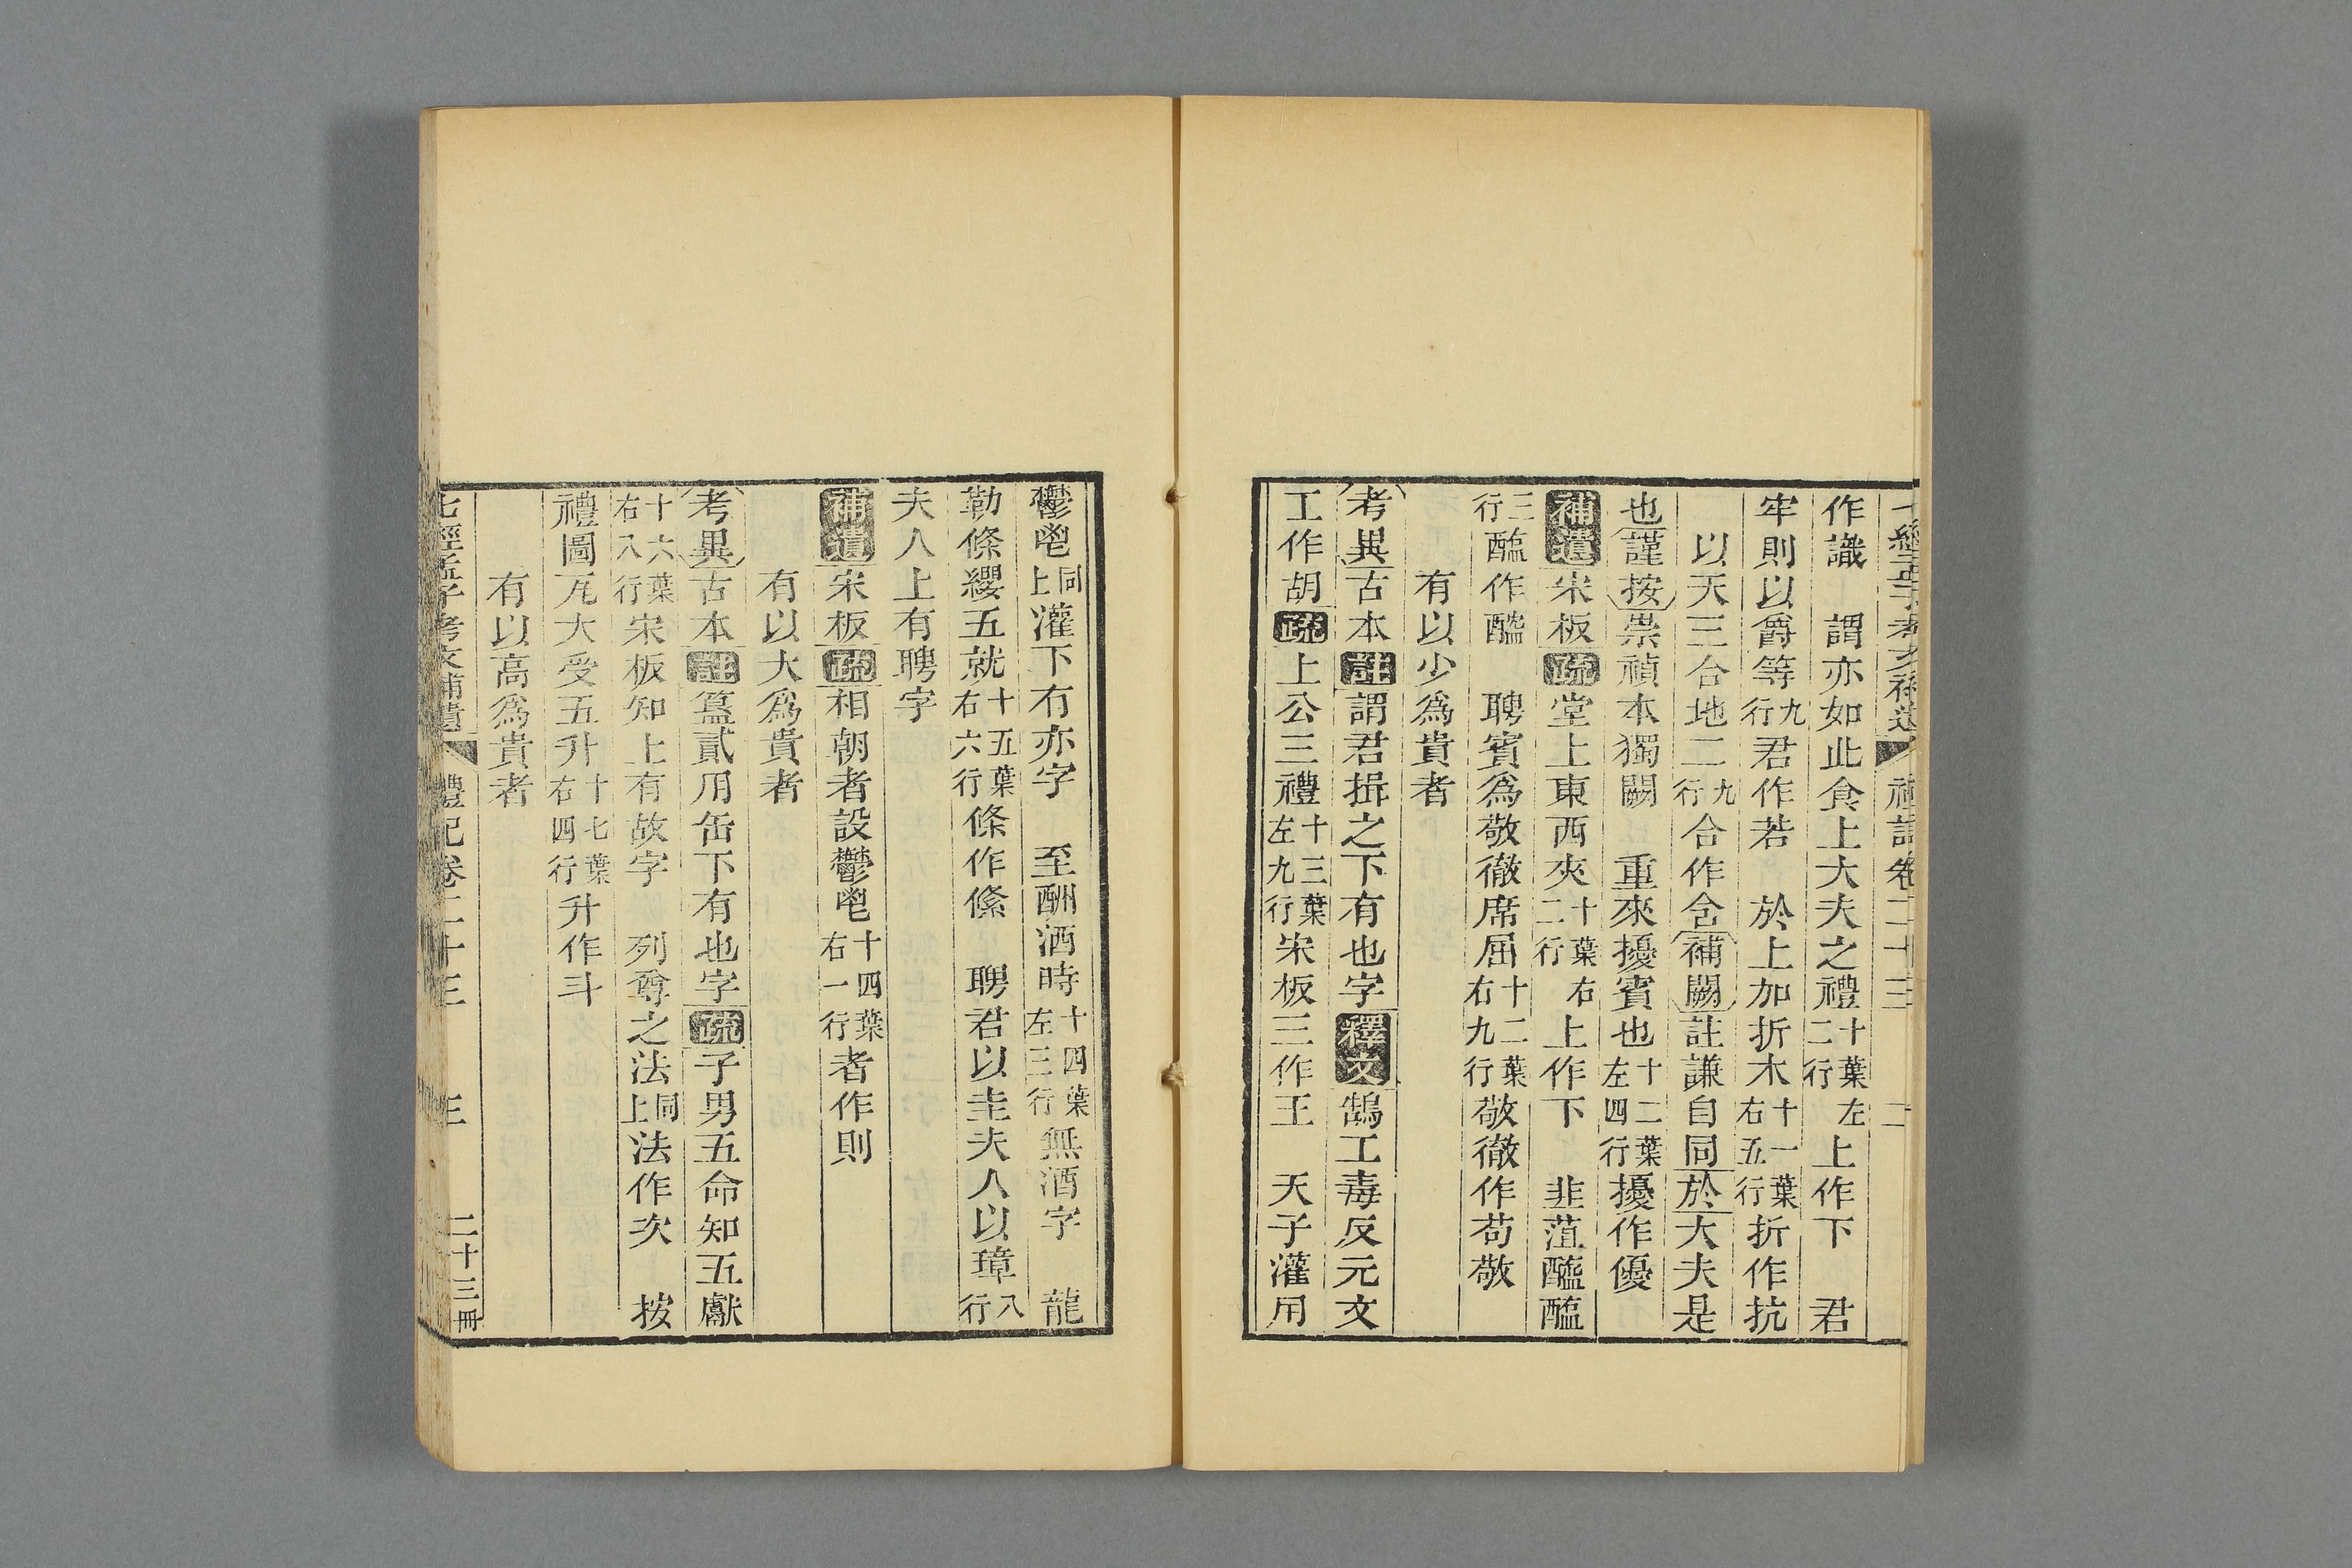 七經孟子考文補遺 禮記卷二十三 二
作識 謂亦如此食上大夫之禮十葉左二行上作下 君
牢則以爵等九行君作若 於上加折木十一葉右五行折作抗
以天三合地二九行合作含補闕註謙自同於大夫是
也謹按崇禎本獨闕 重來擾賓也十二葉左四行擾作優
補遺宋板疏堂上東西夾十葉右二行上作下 韭菹醓醢
三行醓作醯 聘賓為敬徹席屈十二葉右九行敬徹作苟敬
有以少為貴者
考異古本註謂君揖之下有也字釋文鵠工毒反元文
工作胡疏上公三禮十三葉左九行宋板三作王 天子灌用
鬱鬯同上灌下有亦字 至酬酒時十四葉左三行無酒字 龍
勒條纓五就十五葉右六行條作絛 聘君以圭夫人以璋八行
夫人上有聘字
補遺宋板疏相朝者設鬱鬯十四葉右一行者作則
有以大為貴者
考異古本註簋貳用缶下有也字疏子男五命知五獻
十六葉右八行宋板知上有故字 列尊之法同上法作次 按
禮圖瓦大受五升十七葉右四行升作斗
有以高為貴者
七經孟子考文補遺 禮記卷二十三 三 二十三冊